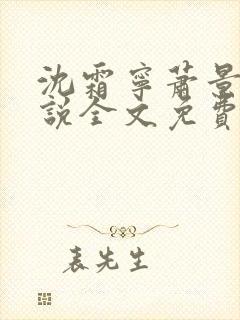 沈霜寧蕭景
說全文免費
表先生